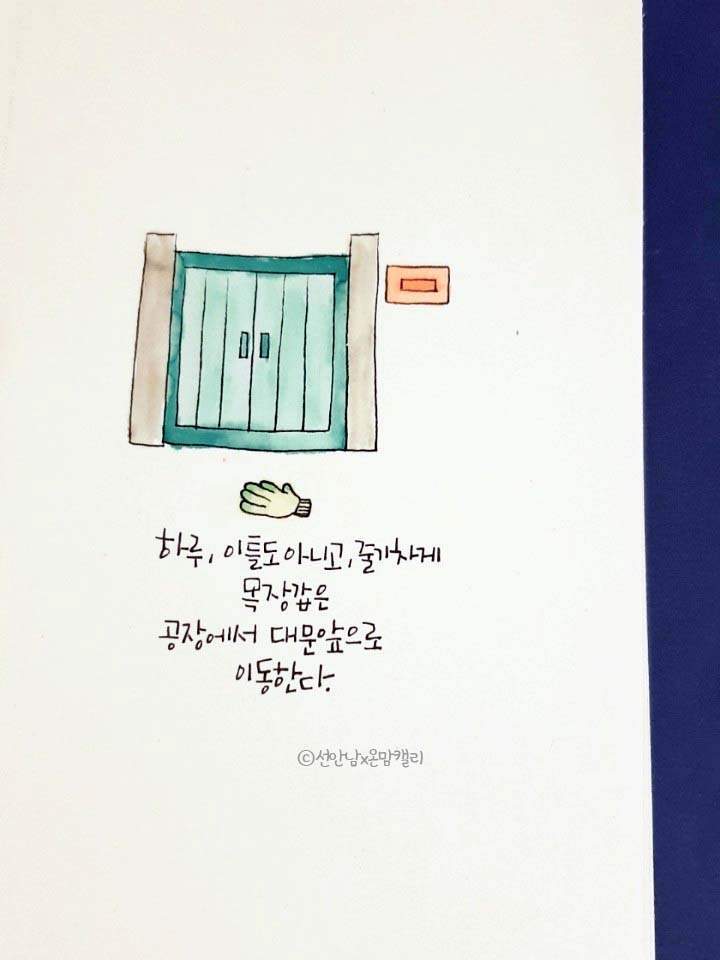 하루, 이틀도 아니고, 줄기차게
목장갑은
공장에서 대문앞으로
이동한다.
©선안남x온맘캘리